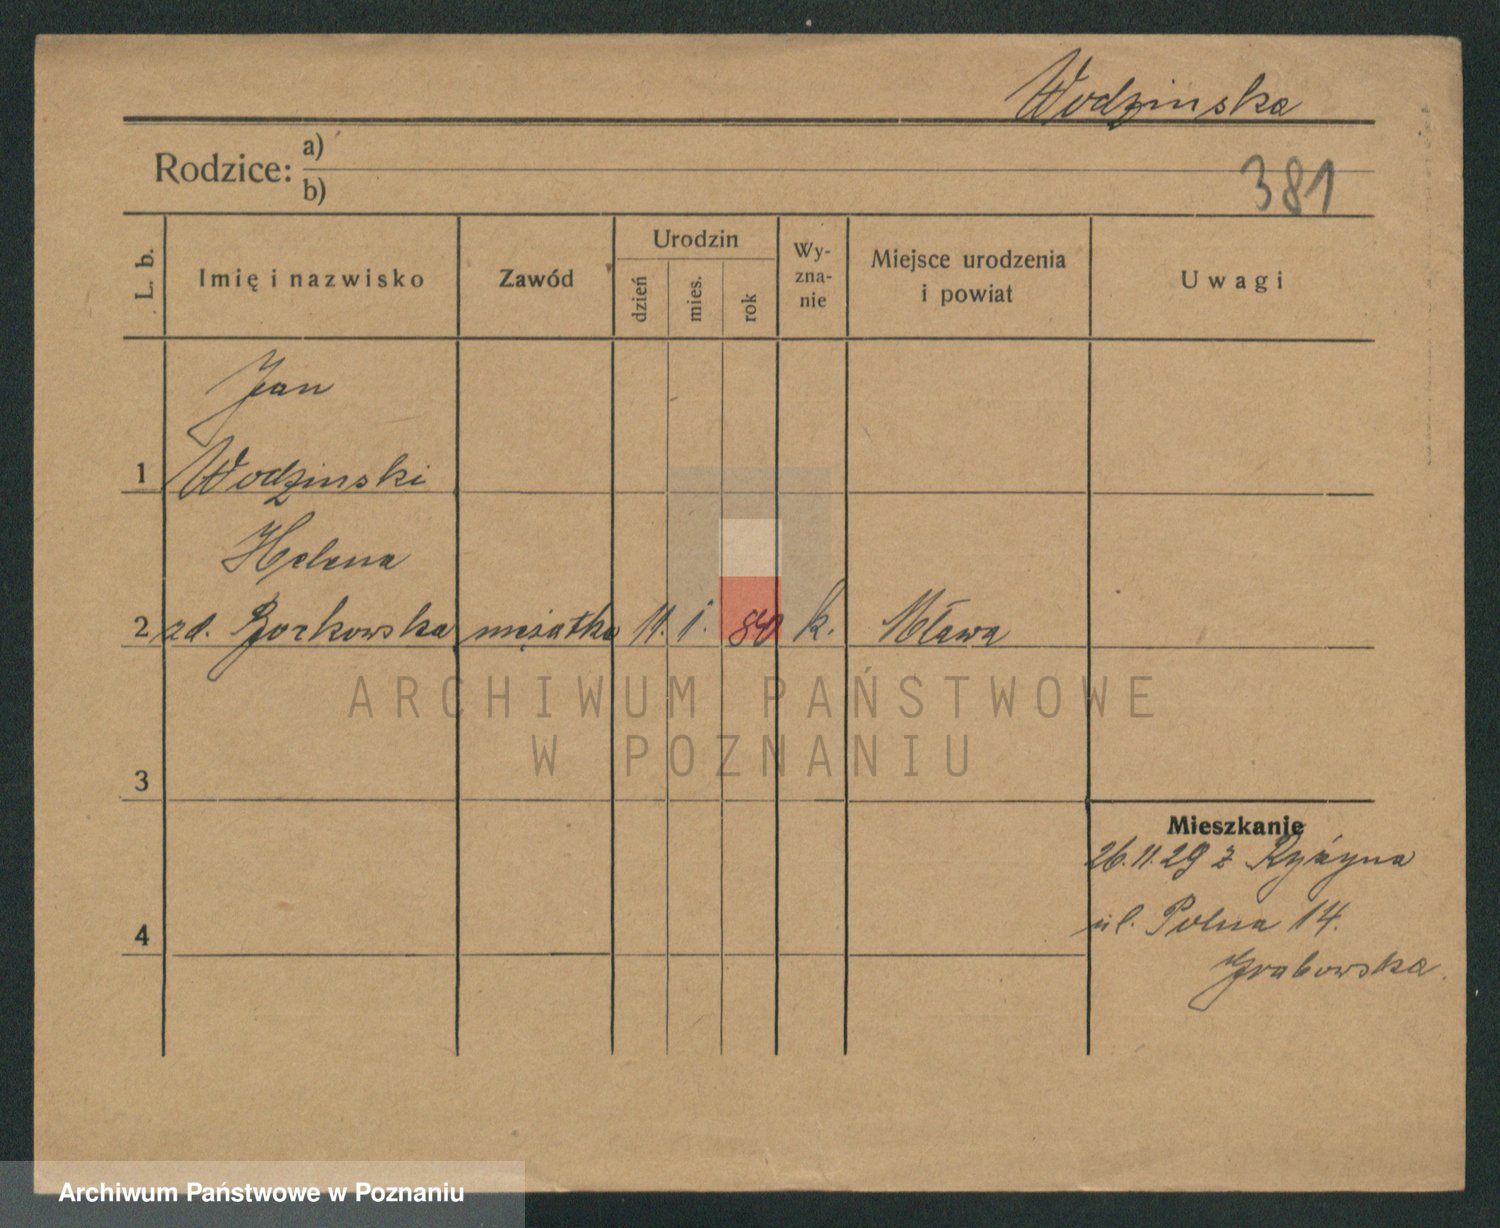 Wodzinska
Rodzice: a)
b)
381
L. b.
Imię i nazwisko
Zawód
Urodzin
dzień
mies.
rok
Wy-
zna-
nie
Miejsce urodzenia
i powiat
Uwagi
Jan
1 Wodzinski
Helena
2 zd. Borkowska mężatka 11. 1. 840 k. Mława
3
4
Mieszkanie
26.11.29 z Ryżyna
ul. Polna 14.
Grabowska.
ARCHIWUM PAŃSTWOWE
W POZNANIU
Archiwum Państwowe w Poznaniu